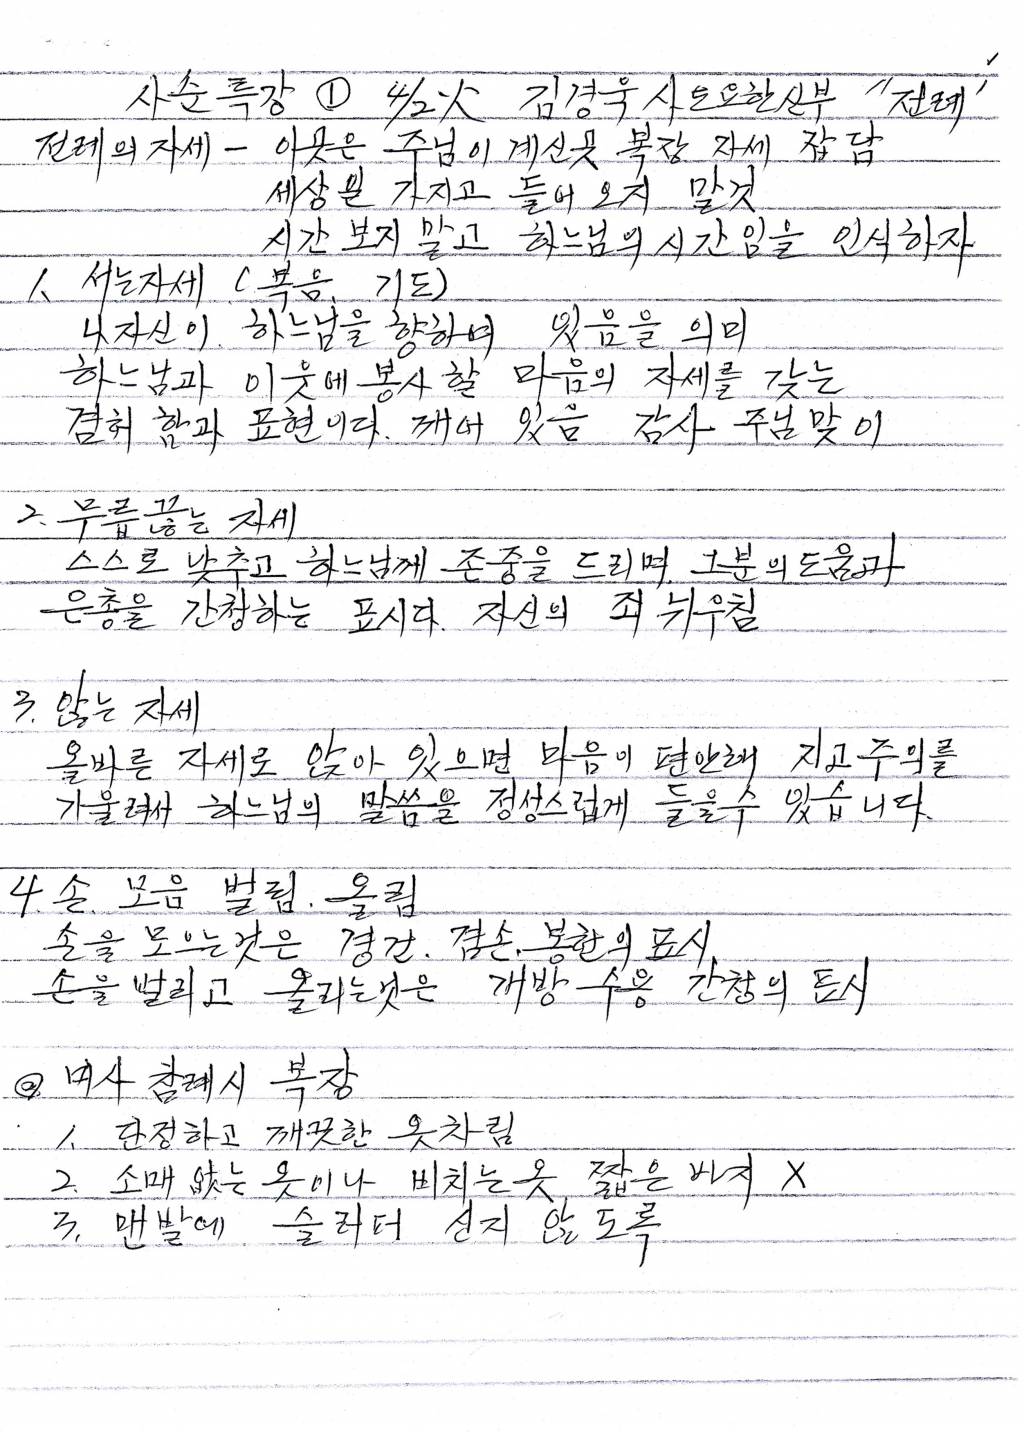 사순특강 ① 4/2火 김경욱 사도요한신부 "전례"
전례의 자세 - 이곳은 주님이 계신곳 복장 자세 잡담
세상일 가지고 들어 오지 말것
시간 보지 말고 하느님의 시간임을 인식하자
1. 서는자세 (복음, 기도)
나 자신이 하느님을 향하여 있음을 의미
하느님과 이웃에 봉사할 마음의 자세를 갖는
겸허함과 표현이다. 깨어 있음 감사 주님맞이
2. 무릎끓는 자세
스스로 낮추고 하느님께 존중을 드리며 그분의 도움과
은총을 간청하는 표시다. 자신의 죄 뉘우침
3. 앉는 자세
올바른 자세로 앉아 있으면 마음이 편안해 지고 주의를
기울려서 하느님의 말씀을 정성스럽게 들을수 있습니다.
4. 손 모음 벌림. 올림
손을 모으는것은 경건. 겸손. 봉헌의 표시
손을 벌리고 올리는것은 개방 수용 간청의 표시
◎ 미사 참례시 복장
1. 단정하고 깨끗한 옷차림
2. 소매 없는 옷이나 비치는 옷, 짧은 바지 X
3. 맨발에 슬리퍼 신지 않도록